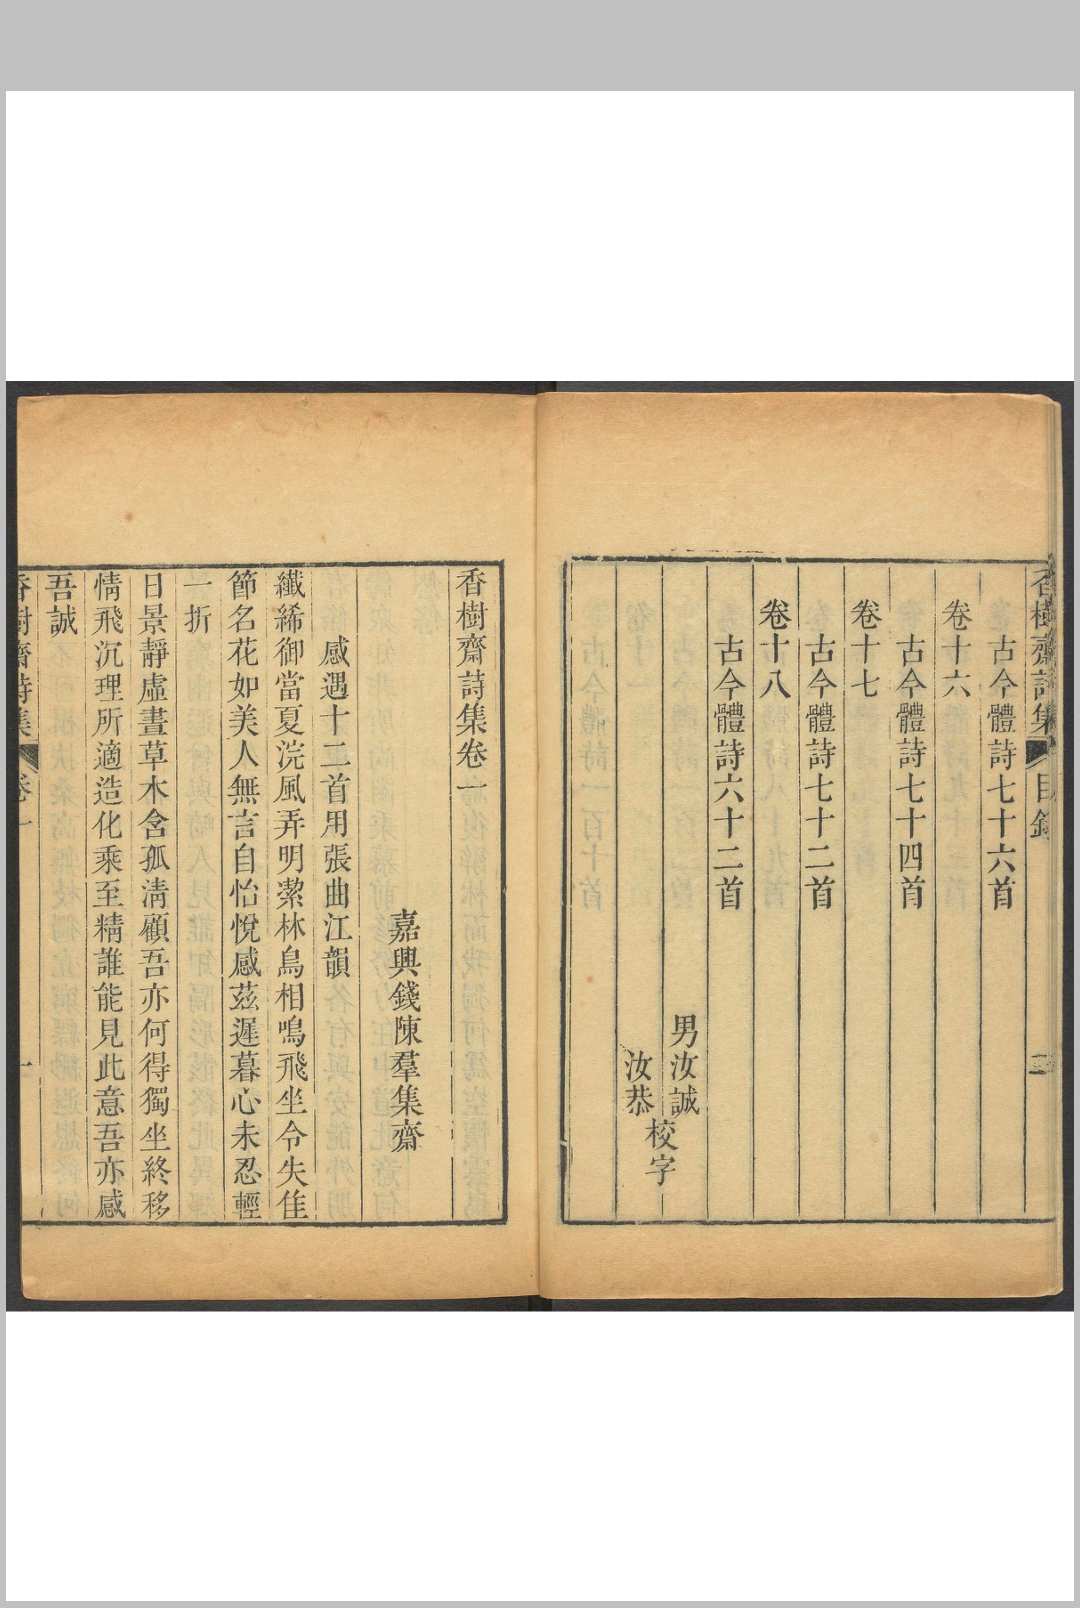 香樹齋詩集
目錄
二
古今體詩七十六首
卷十六
古今體詩七十四首
卷十七
古今體詩七十二首
卷十八
古今體詩六十二首
男汝誠
汝恭
校字
香樹齋詩集卷一
嘉興錢陳羣集齋
感遇十二首用張曲江韻
纖絺御當夏浣風弄明絜林鳥相鳴飛坐令失隹
節名花如美人無言自怡悅感茲遲暮心未忍輕
一折
日景靜虛晝草木含孤淸顧吾亦何得獨坐終移
情飛沉理所適造化乘至精誰能見此意吾亦感
吾誠
香樹齋詩集
卷一
一